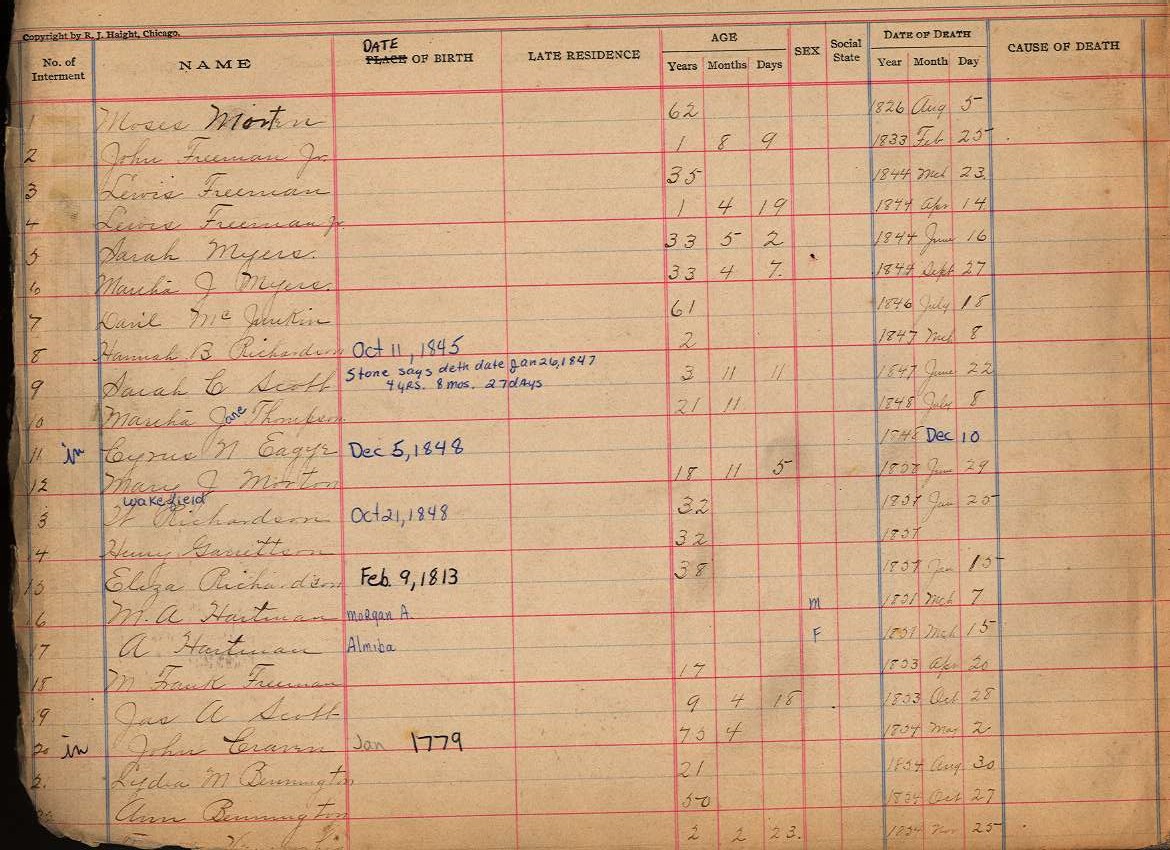 Copyright by R. J. Haight, Chicago.
No. of Interment NAME DATE PLACE OF BIRTH LATE RESIDENCE AGE Years Months Days SEX Social State DATE OF DEATH Year Month Day CAUSE OF DEATH
1 Moses Morten 62 1826 Aug 5
2 John Freeman Jr. 1 8 9 1833 Feb 25
3 Lewis Freeman 35 1844 Mch 23
4 Lewis Freeman Jr. 1 4 19 1844 Apr 14
5 Sarah Myers. 33 5 2 1844 June 16
6 Martha J Myers. 33 4 7. 1844 Sept 27
7 Davil Mc Junkin 61 1846 July 18
8 Hannah B Richardson Oct 11, 1845 2 1847 Mch 8
Stone says deth date Jan 26, 1847
9 Sarah C Scott 4 yrs. 8 mos. 27 days 3 11 11 1847 June 22
10 Martha Jane Thompson 21 11 1848 July 8
11 in Cyrus N Eagye Dec 5, 1848 1848 Dec 10
12 Mary J Morton 18 11 5 June 29
Wakefield
3 W Richardson Oct 21, 1848 32 1851 Jan 25
4 Henry Garrettson 32 1851
15 Eliza Richardson Feb. 9, 1813 38 1851 Jan 15
6 M. A Hartman Morgan A. m 1851 Mch 7
17 A Hartman Almiba F 1851 Mch 15
18 M Frank Freeman 17 1853 Apr 20
19 Jas A Scott 9 4 18 1853 Oct 28
20 in John Craven Jan 1779 75 4 1854 May 2
2. Lydia M Bennington 21 1854 Aug 30
22 Ann Bennington 50 1854 Oct 27
2 2 23. 1854 Nov 25